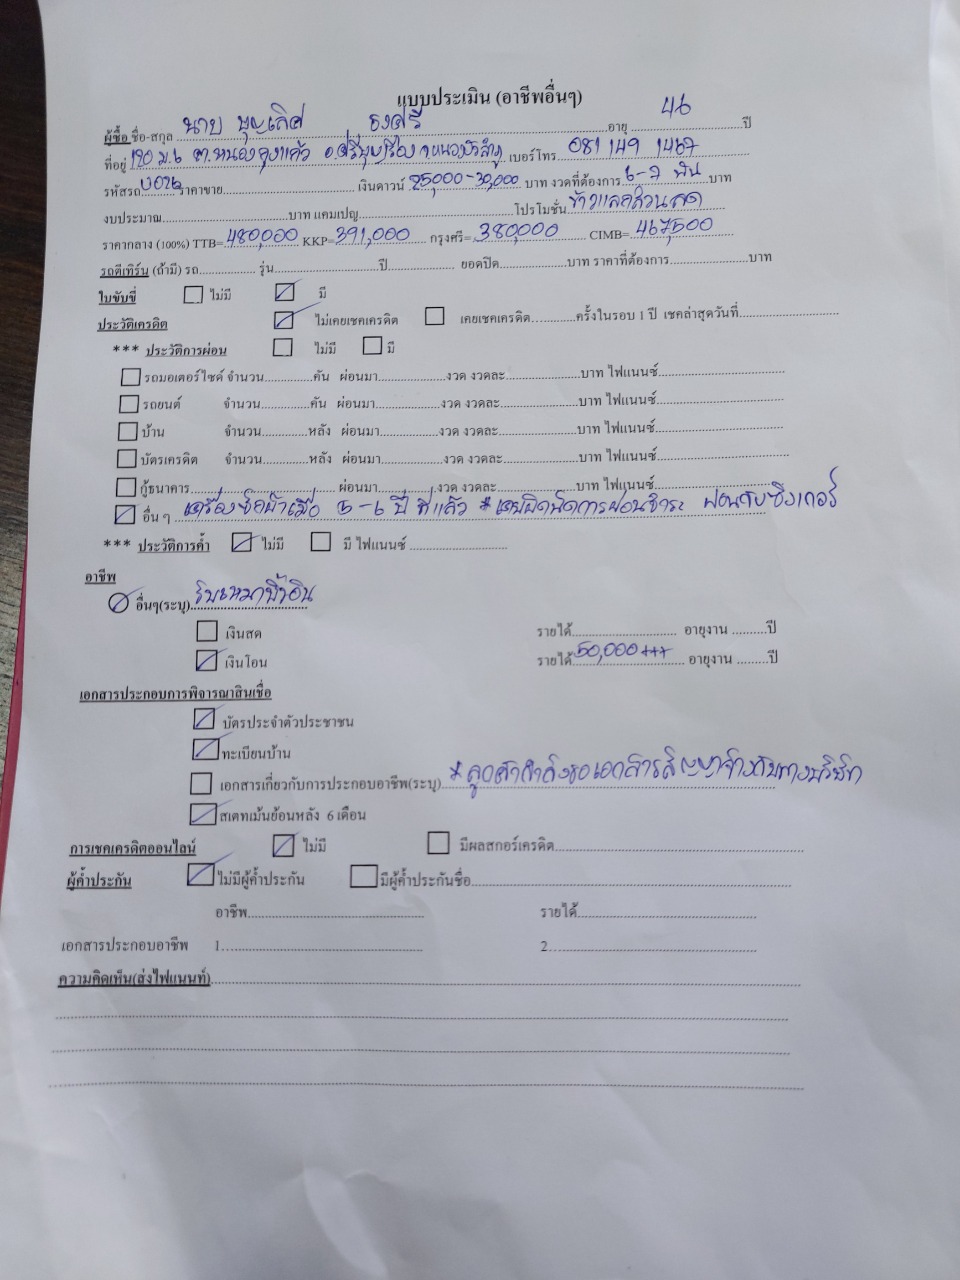 แบบประเมิน (อาชีพอื่นๆ)
ผู้ซื้อ ชื่อ-สกุล นาย บุญเลิศ ธงศรี อายุ 46 ปี
ที่อยู่ 120 ม.6 ต.หนองกุงแก้ว อ.ศรีบุญเรือง จ.หนองบัวลำภู เบอร์โทร 081 149 1467
รหัสรถ U026 ราคาขาย เงินดาวน์ 25,000-30,000 บาท งวดที่ต้องการ 6-7 พัน บาท
งบประมาณ บาท แคมเปญ โปรโมชั่น ข้าวแลกส่วนลด
ราคากลาง (100%) TTB= 480,000 KKP= 391,000 กรุงศรี= 380,000 CIMB= 467,500
รถตีเทิร์น (ถ้ามี) รถ รุ่น ปี ยอดปิด บาท ราคาที่ต้องการ บาท
ใบขับขี่ ไม่มี มี
ประวัติเครดิต ไม่เคยเชคเครดิต เคยเชคเครดิต ครั้งในรอบ 1 ปี เชคล่าสุดวันที่
*** ประวัติการผ่อน ไม่มี มี
รถมอเตอร์ไซด์ จำนวน คัน ผ่อนมา งวด งวดละ บาท ไฟแนนซ์
รถยนต์ จำนวน คัน ผ่อนมา งวด งวดละ บาท ไฟแนนซ์
บ้าน จำนวน หลัง ผ่อนมา งวด งวดละ บาท ไฟแนนซ์
บัตรเครดิต จำนวน หลัง ผ่อนมา งวด งวดละ บาท ไฟแนนซ์
กู้ธนาคาร ผ่อนมา งวด งวดละ บาท ไฟแนนซ์
อื่น ๆ เครื่องซักผ้าเมื่อ 5-6 ปี ที่แล้ว *เคยผิดนัดการผ่อนชำระ ผ่อนกับซิงเกอร์
*** ประวัติการค้ำ ไม่มี มี ไฟแนนซ์
อาชีพ
อื่นๆ(ระบุ) รับเหมาบิ้วอิน
เงินสด รายได้ อายุงาน ปี
เงินโอน รายได้ 50,000+++ อายุงาน ปี
เอกสารประกอบการพิจารณาสินเชื่อ
บัตรประจำตัวประชาชน
ทะเบียนบ้าน
เอกสารเกี่ยวกับการประกอบอาชีพ(ระบุ) *ลูกค้ากำลังขอเอกสารสัญญาจ้างกับทางบริษัท
สเตทเม้นย้อนหลัง 6 เดือน
การเชคเครดิตออนไลน์ ไม่มี มีผลสกอร์เครดิต
ผู้ค้ำประกัน ไม่มีผู้ค้ำประกัน มีผู้ค้ำประกันชื่อ
อาชีพ รายได้
เอกสารประกอบอาชีพ 1 2
ความคิดเห็น(ส่งไฟแนนท์)